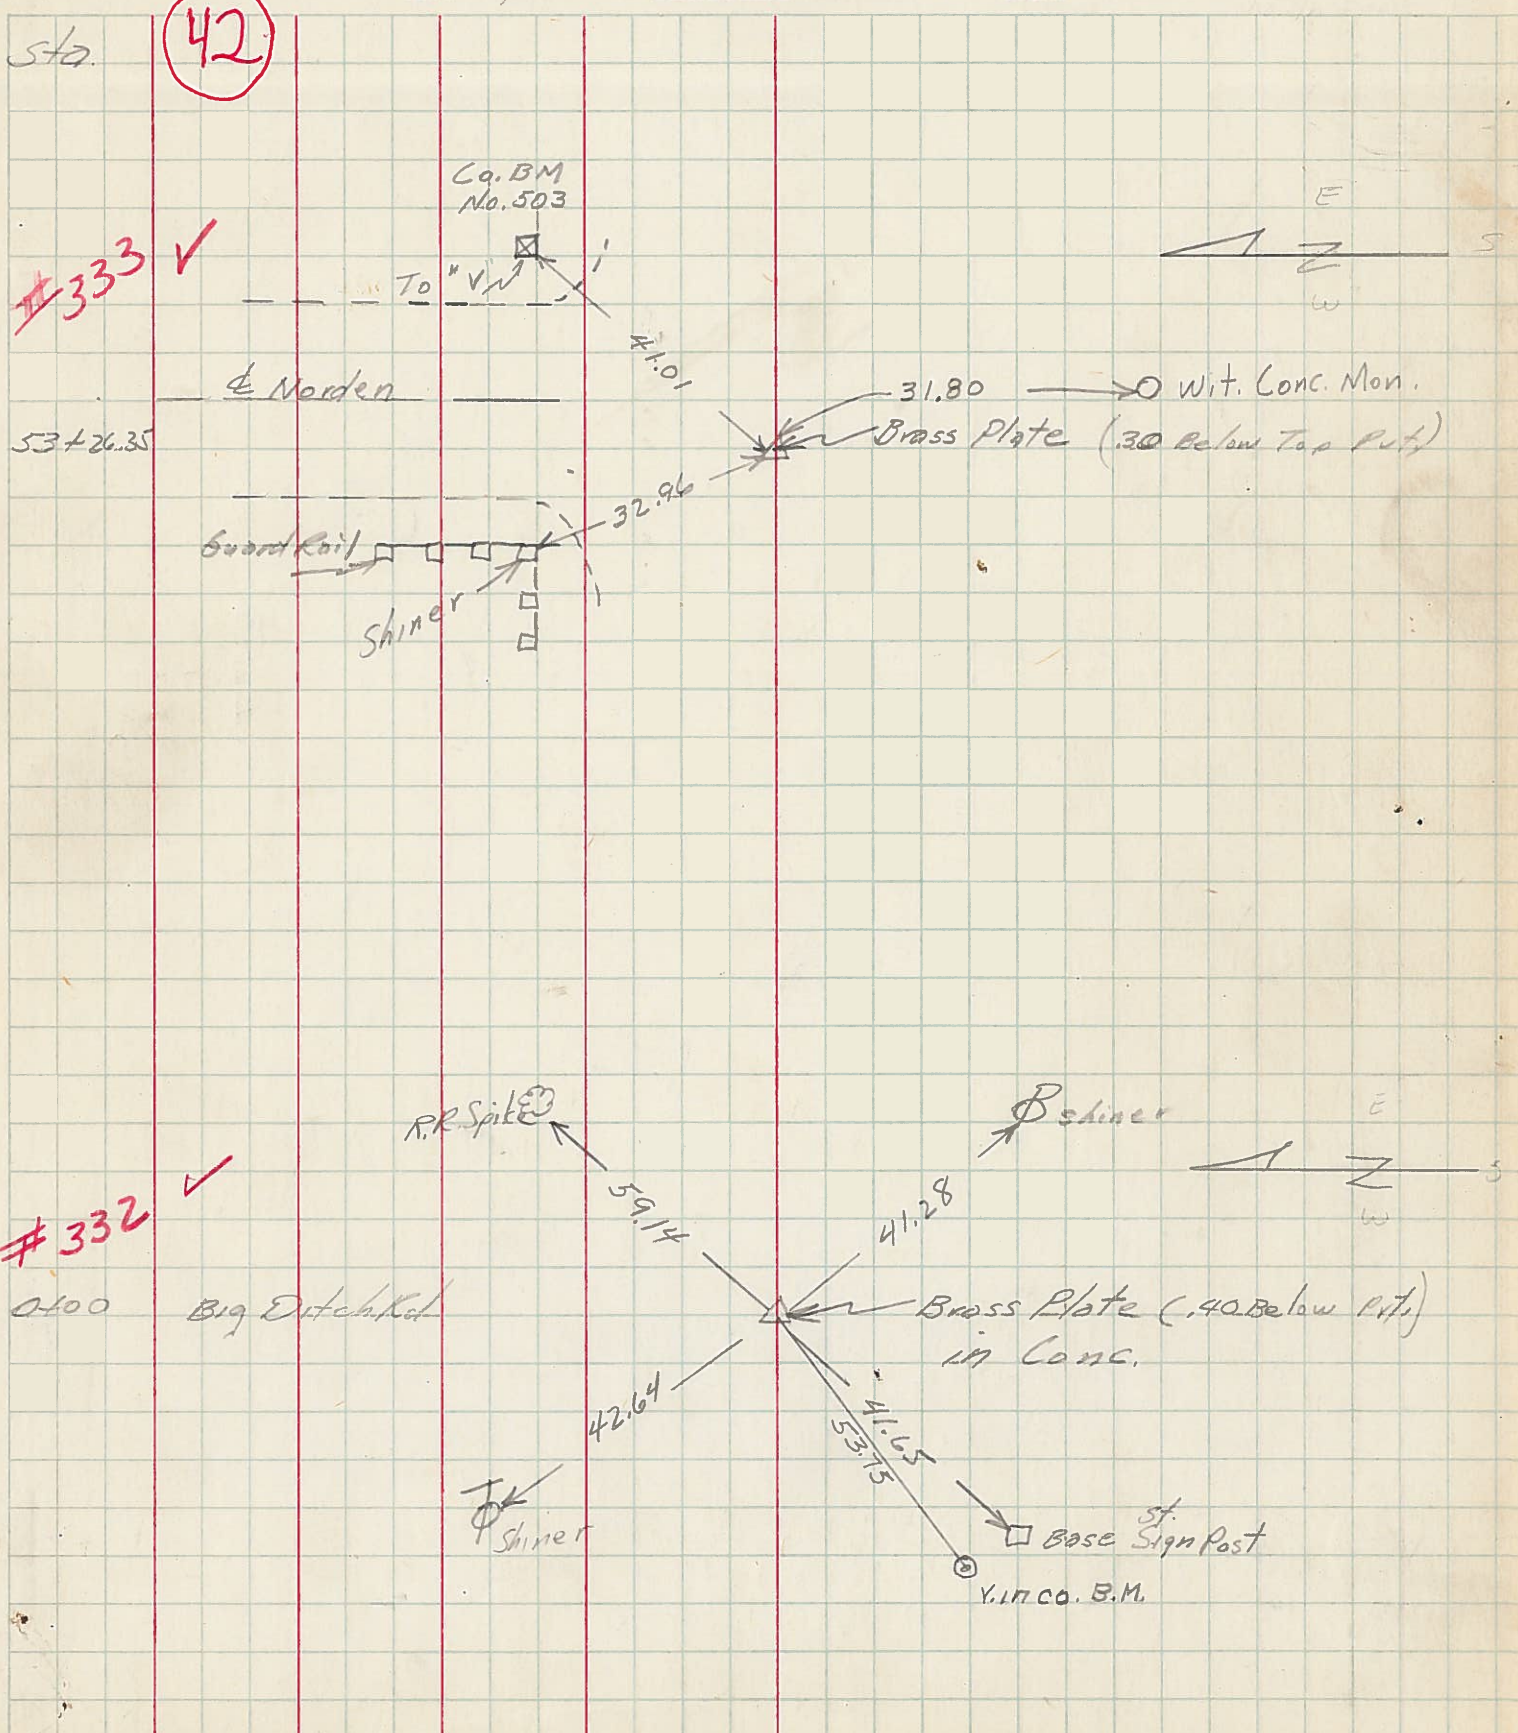 42
Sta.
Co. BM
No. 503
E
#333 ✓
To "V"
S
N
W
41.01
℄ Norden
31.80
Wit. Conc. Mon.
53+26.35
Brass Plate (.30 Below Top Pvt.)
32.96
Guard Rail
Shiner
R.R. Spike
shiner
E
✓
N
S
#332
59.14
41.28
W
0+00
Big Ditch Rd
Brass Plate (.40 Below Pvt.)
in Conc.
42.64
41.65
53.75
St.
Shiner
Base Sign Post
V. in co. B.M.